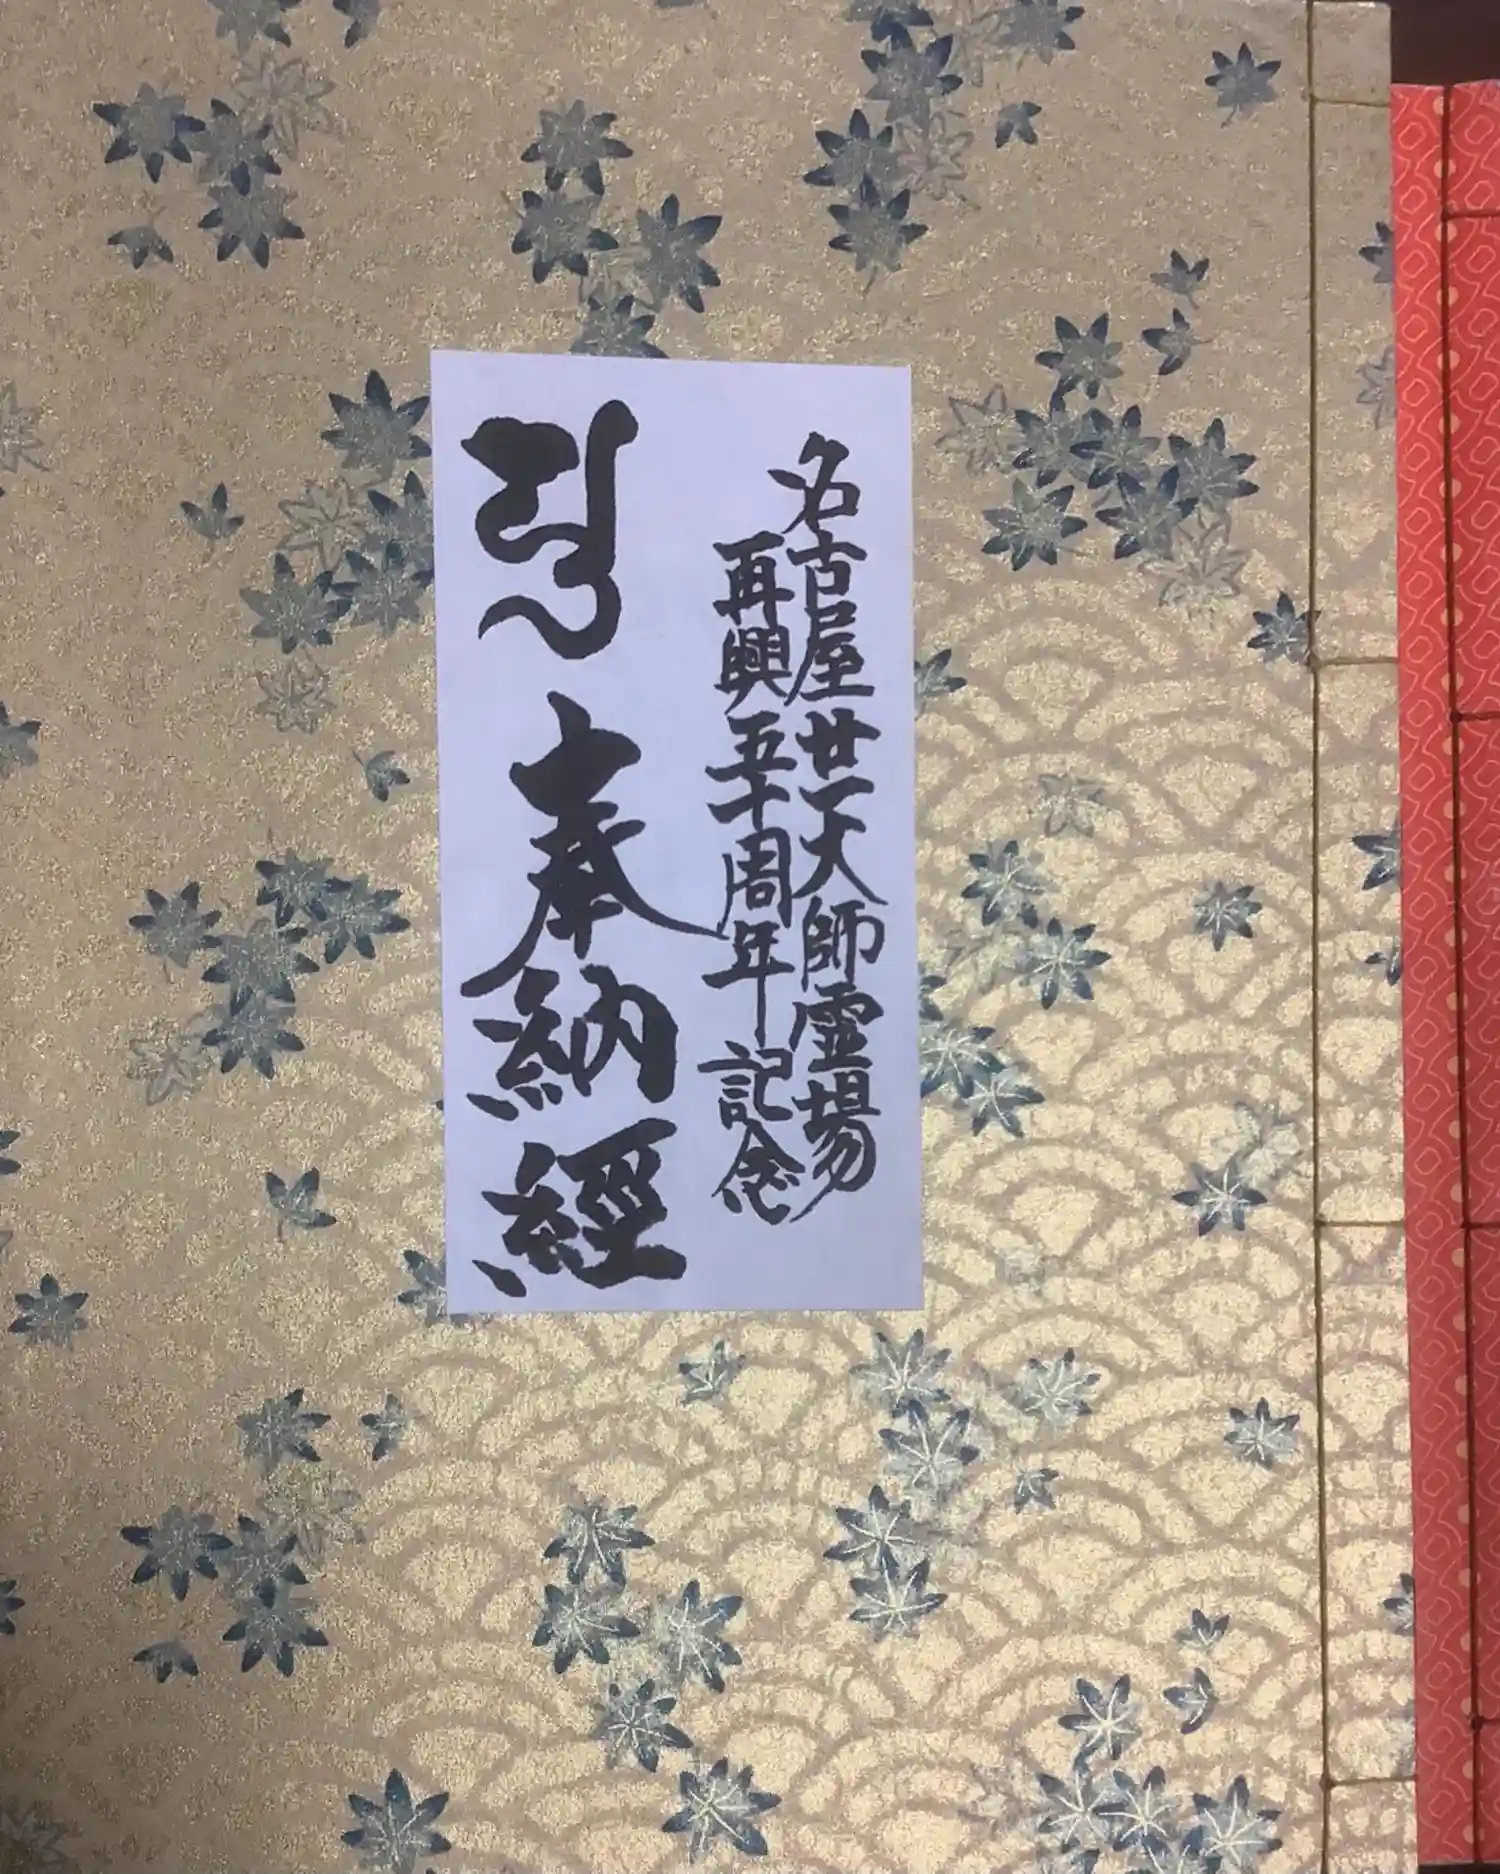 名古屋廿一大師霊場
再興五十周年記念
奉納經